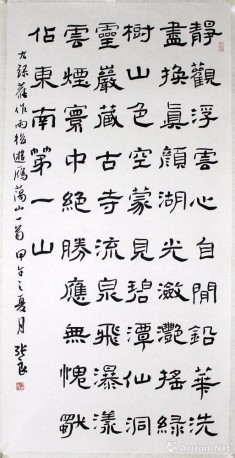 靜觀浮雲心自閒鉛華洗
盡換真顏湖光瀲灩搖綠
樹山色空蒙見碧潭仙洞
靈巖藏古寺流泉飛瀑漾
雲煙寰中絕勝應無愧
佔東南第一山
右錄舊作雨後遊雁蕩山一首甲午之夏月張